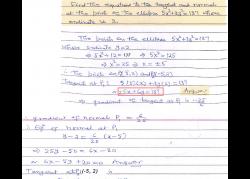 Find the equations to the tangent and normal
at the point on the ellipse 5x²+3y²=137 whose
ordinate is 2.
The points on the ellipse 5x²+3y²=137
whose ordinate y=2
⇒ 5x²+12=137 ⇒ 5x²=125
⇒ x²=25 ⇒ x=±5
∴ The points are P₁(5,2) and P₂(-5,2)
Tangent at P₁: 5(5x)+3(2y)=137
⇒ 25x+6y=137 Answer
⇒ gradient of tangent at P₁ = -25/6
∴ gradient of normal P₁ = 6/25
∴ Eq. of normal at P₁
y-2 = 6/25 (x-5)
⇒ 25y-50 = 6x-30
⇒ 6x-25y+20=0 Answer
Tangent at P₂(-5, 2)